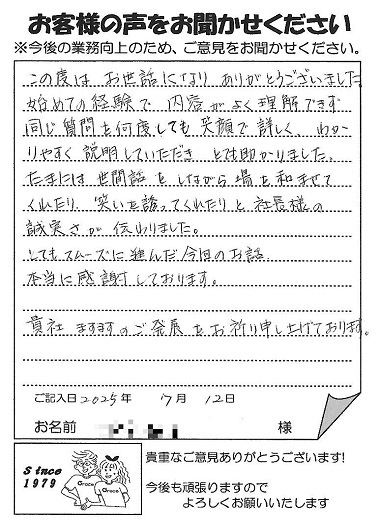 お客様の声をお聞かせください
※今後の業務向上のため、ご意見をお聞かせください。
この度は お世話になり ありがとうございました
始めての経験で 内容が よく理解できず
同じ質問を何度しても 笑顔で 詳しく わか
りやすく 説明していただき とても助かりました。
たまには 世間話を しながら 場を和ませて
くれたり 笑いを誘ってくれたりと 社長様の
誠実さが 伝わりました。
とてもスムーズに 進んだ 今回のお話
本当に 感謝しております。
貴社 ますますのご発展をお祈り申し上げております。
ご記入日 2025年 7月 12日
お名前 様
貴重なご意見ありがとうございます!
Since
1979
Grace
Grace
今後も頑張りますので
よろしくお願いいたします